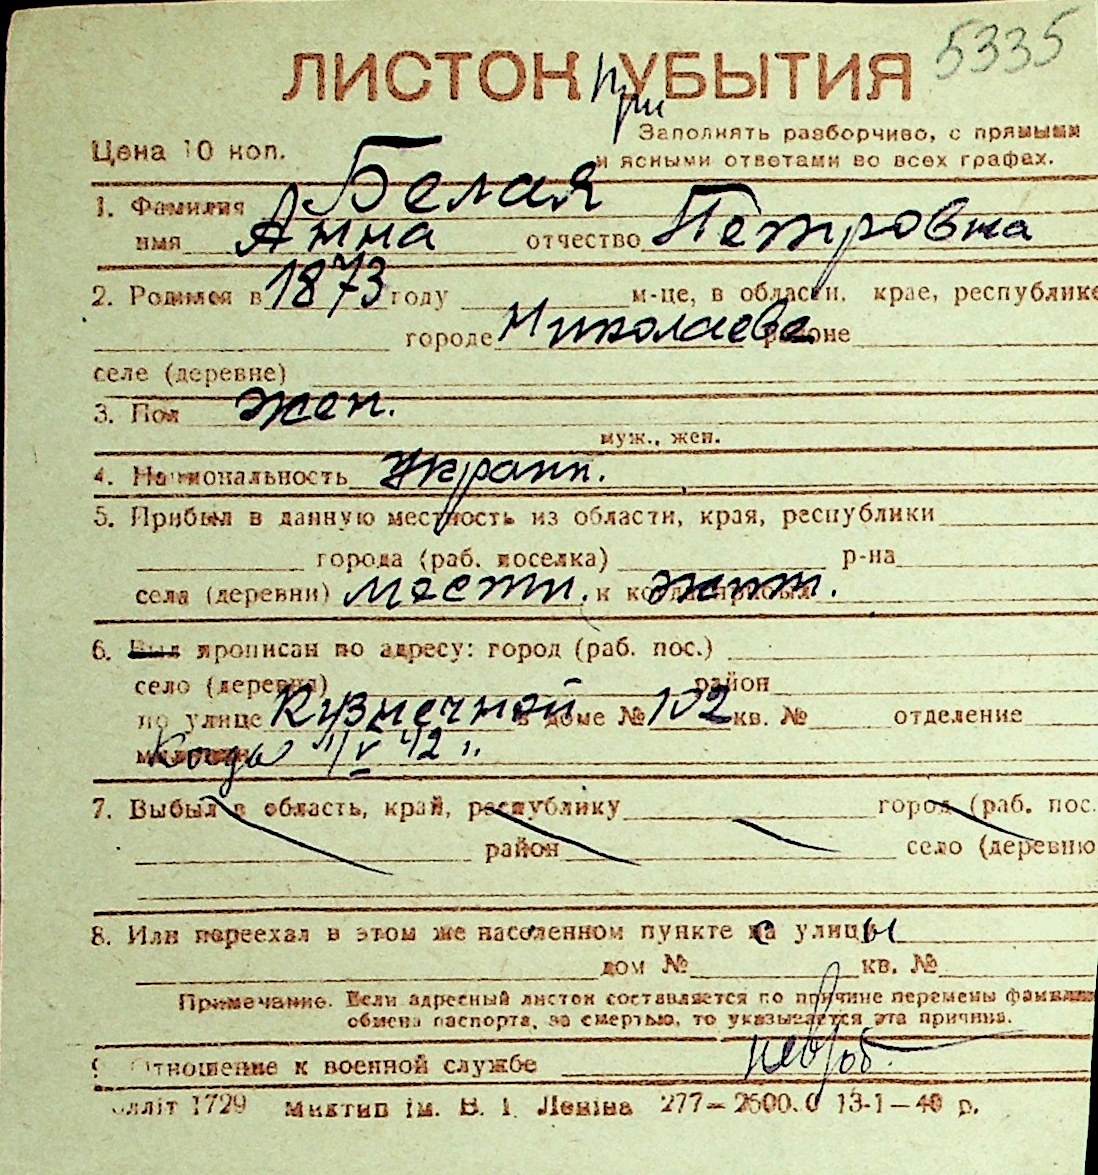 5335
ЛИСТОК при УБЫТИЯ
Заполнять разборчиво, с прямыми
Цена 10 коп. и ясными ответами во всех графах.
1. Фамилия Белая
имя Анна отчество Петровна
2. Родился в 1873 году м-це, в области, крае, республике
городе Николаеве районе
селе (деревне)
3. Пол жен.
муж., жен.
4. Национальность украин.
5. Прибыл в данную местность из области, края, республики
города (раб. поселка) р-на
села (деревни) местн. и когда прибыл жит.
6. Был прописан по адресу: город (раб. пос.)
село (деревня) район
по улице Кузнечной в доме № 102 кв. № отделение
Когда
7. Выбыл в область, край, республику город (раб. пос.
район село (деревню
8. Или переехал в этом же населенном пункте с улицы
дом № кв. №
Примечание. Если адресный листок составляется по причине перемены фамилии
обмена паспорта, за смертью, то указывается эта причина.
9. Отношение к военной службе невоб.
олліт 1729 Миктип ім. В. І. Леніна 277— 2500.0 13-1—40 р.